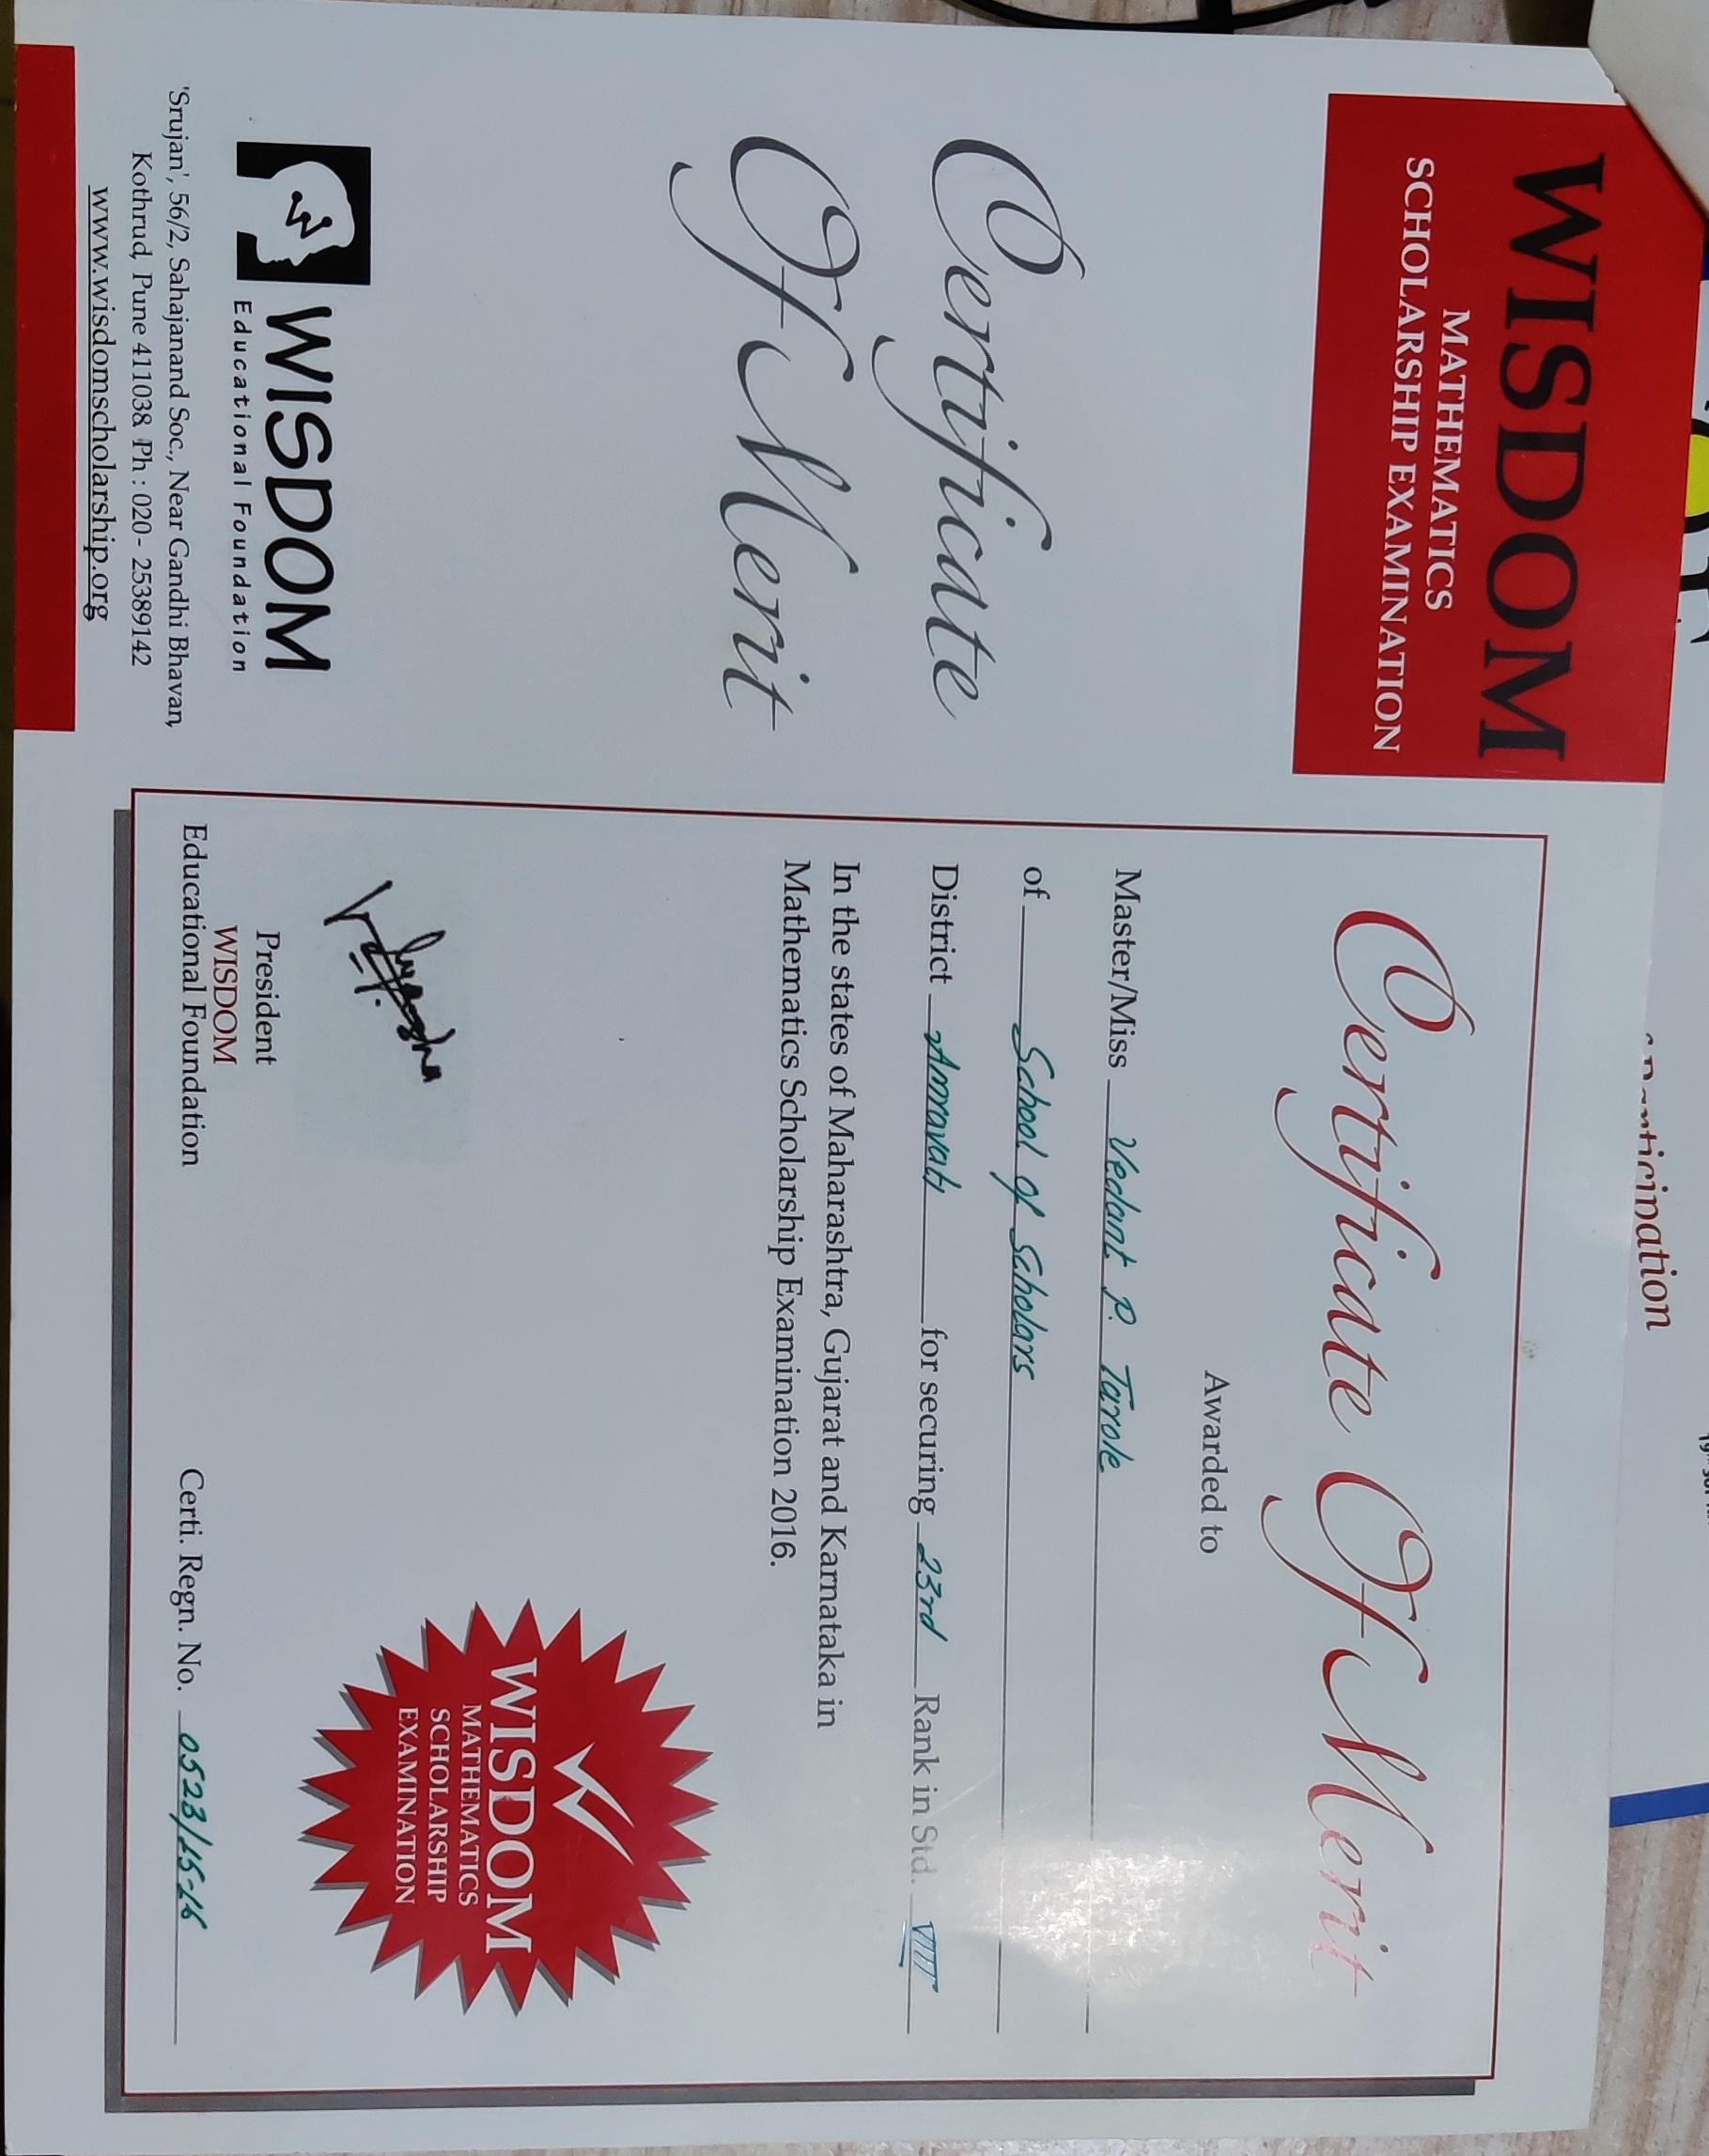 WISDOM
MATHEMATICS
SCHOLARSHIP EXAMINATION
Certificate
Of Merit
WISDOM
Educational Foundation
'Srujan', 56/2, Sahajanand Soc., Near Gandhi Bhavan,
Kothrud, Pune 411038 Ph : 020- 25389142
www.wisdomscholarship.org
Certificate Of Merit
Awarded to
Master/Miss Vedant P. Tarole
of School of Scholars
District Amravati for securing 23rd Rank in Std. VIII
In the states of Maharashtra, Gujarat and Karnataka in
Mathematics Scholarship Examination 2016.
President
WISDOM
Educational Foundation
WISDOM
MATHEMATICS
SCHOLARSHIP
EXAMINATION
Certi. Regn. No. 0523/15-16